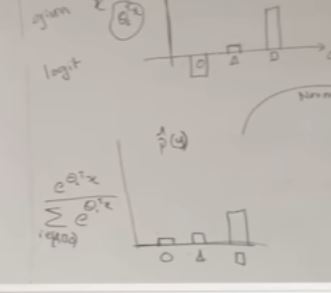 given x
θᵢᵀx
logit
○ △ □
Norm
p̂(y)
e^{θᵢᵀx}
Σ e^{θᵢᵀx}
○ △ □